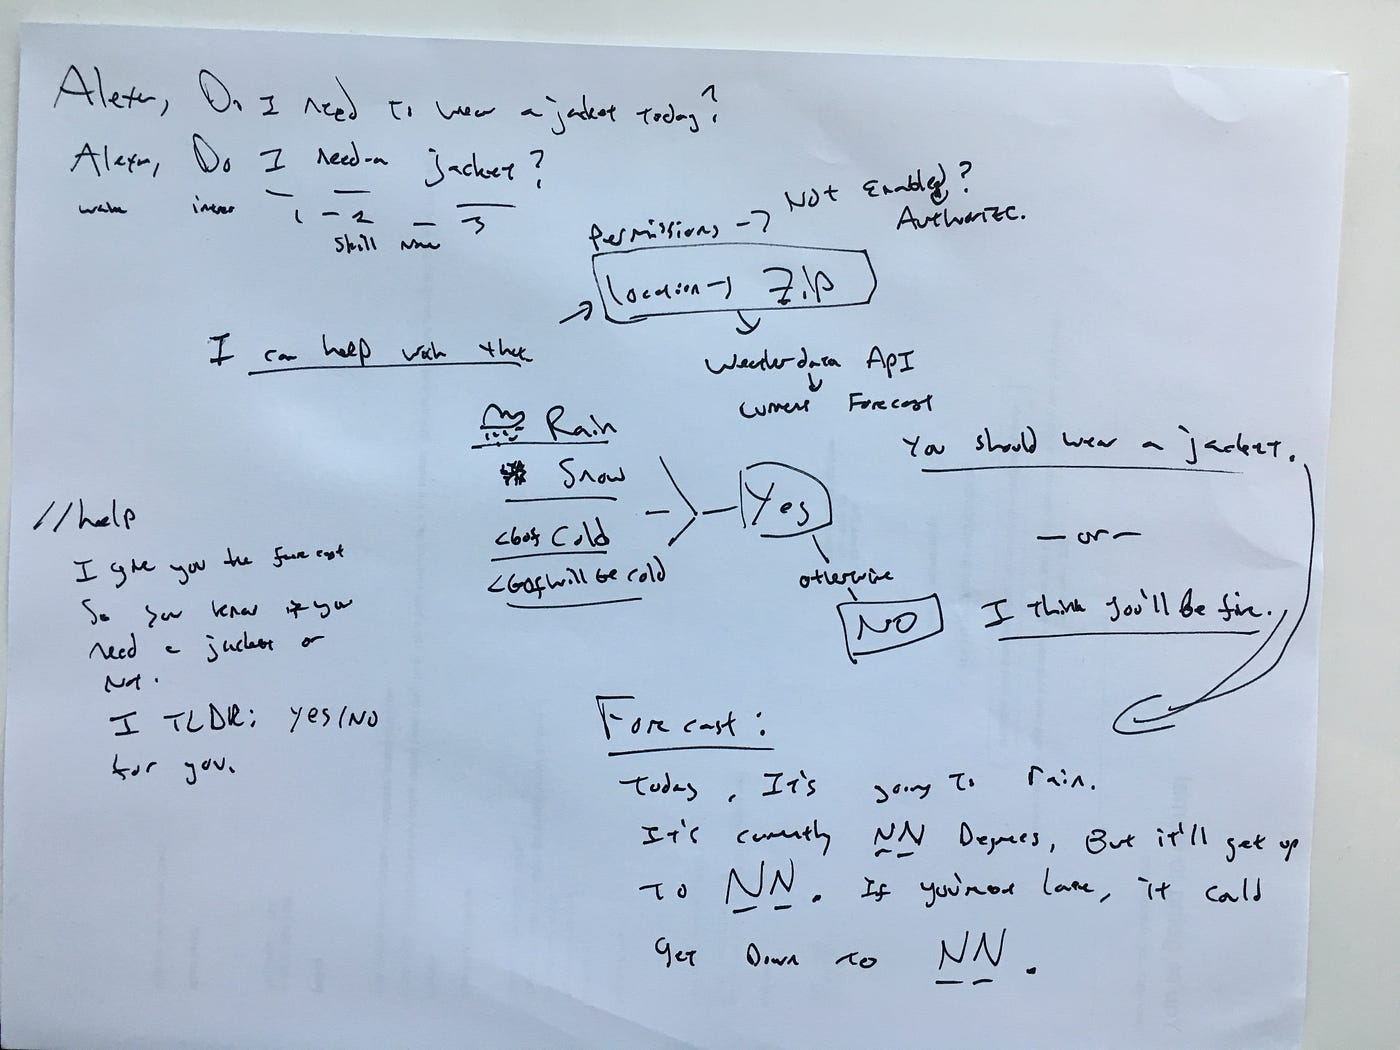 Alexa, Do I need to wear a jacket today?
Alexa, Do I need a jacket?
wake
1 - 2 - 3
Skill Name
Permissions → Not Enabled?
Authorize.
location → Zip
I can help with that
Weather data API
Current Forecast
Rain
Snow
<60f Cold
<60f will be cold
Yes
otherwise
NO
You should wear a jacket.
- or -
I think you'll be fine.
//help
I give you the forecast
So you know if you
need a jacket or
Not.
I TLDR; Yes/No
for you.
Forecast:
Today, It's going to rain.
It's currently NN Degrees, But it'll get up
to NN. If you're out late, it could
get Down to NN.